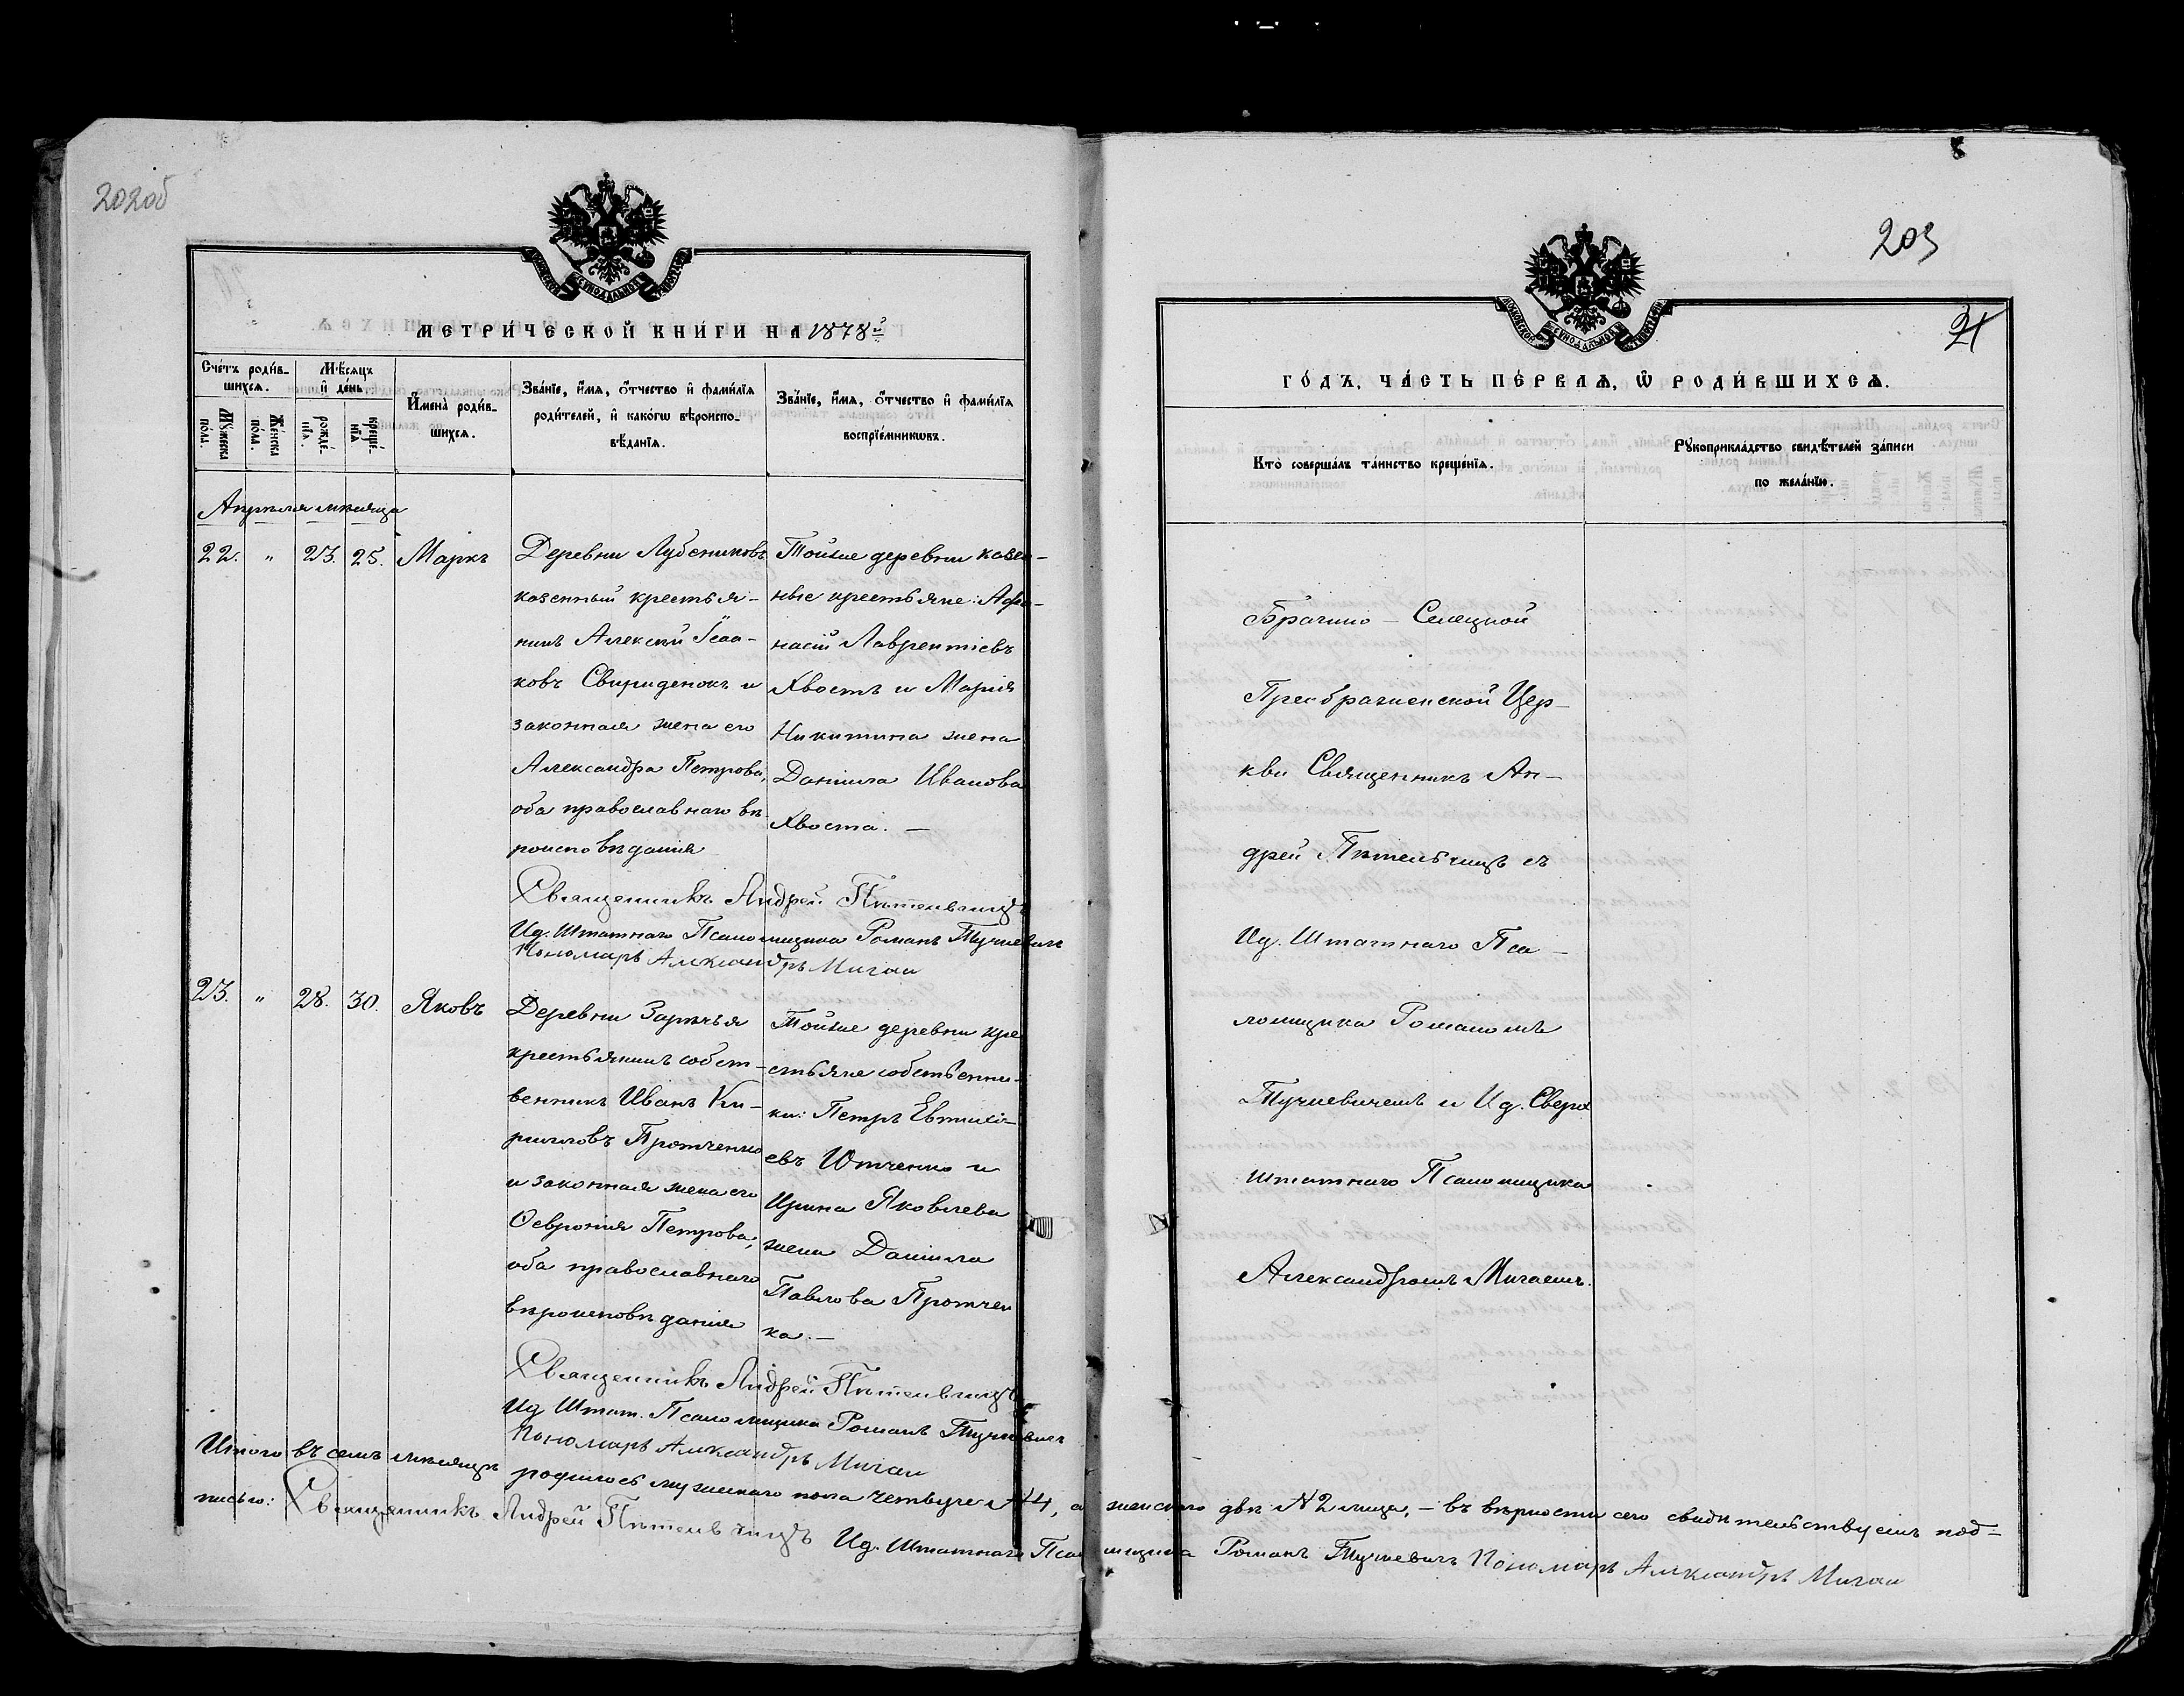 202об
МЕТРИ́ЧЕСКОЙ КНИ́ГИ НА 1878й
Сче́тъ роди́в-
шихсѧ.
Мѣ́сѧцъ
и҆ де́нь.
Мꙋ́жеска
по́ла.
Же́нска
по́ла.
рожде́-
нїѧ.
креще́-
нїѧ
И҆мена̀ роди́в-
шихсѧ.
Зва́нїе, и҆́мѧ, ѻ҆́тчество и҆ фами́лїѧ
роди́телей, и҆ како́гѡ вѣ́роиспо-
вѣ́данїѧ.
Зва́нїе, и҆́мѧ, ѻ҆́тчество и҆ фами́лїѧ
воспрїе́мникѡвъ.
Апрѣля мѣсяца
22. " 23. 25. Маркъ
Деревни Лубениковъ
казенный крестья-
нинъ Алексѣй Ісаа-
ковъ Свириденокъ и
законная жена его
Александра Петрова,
оба православнаго вѣ-
роисповѣданія
Тойже деревни казен-
ные крестьяне: Афа-
насій Лаврентіевъ
Хвостъ и Марія
Никитина жена
Даніила Иванова
Хвоста. —
Священникъ Андрей Пѣтельчицъ
Ид. Штатнаго Псаломщика Романъ Тучкевичъ
Пономарь Александръ Мигай
23. " 28. 30. Яковъ
Деревни Зарѣчья
крестьянинъ собст-
венникъ Иванъ Ки-
рилловъ Протченко
и законная жена его
Ѳевронія Петрова,
оба православнаго
вѣроисповѣданія
Тойже деревни кре
стьяне собственни-
ки: Петръ Евтихі-
евъ Ютченко и
Ирина Яковлева
жена Даніила
Павлова Протчен
ка. —
Священникъ Андрей Пѣтельчицъ
Ид Штат. Псаломщика Романъ Тучкевичъ
Пономарь Александръ Мигай
Итого въ семъ мѣсяцѣ родилось мужескаго пола четыре N 4, а женскаго двѣ N 2 лица, — въ вѣрности сего свидѣтельствуемъ под-
писью: Священникъ Андрей Пѣтельчицъ Ид. Штатнаго Псаломщика Романъ Тучкевичъ Пономарь Александръ Мигай
203
21
ГО́ДЪ, ЧА́СТЬ ПЕ́РВАѦ, Ѡ҆ РОДИ́ВШИХСѦ.
Кто̀ соверша́лъ та́инство креще́нїѧ.
Рꙋкоприкла́дство свидѣ́телей за́писи
по жела́нїю.
Брагино - Селецкой
Преображенской Цер-
кви Священникъ Ан-
дрей Пѣтельчицъ съ
Ид. Штатнаго Пса-
ломщика Романомъ
Тучкевичемъ и Ид. Сверх
штатнаго Псаломщика
Александромъ Мигаемъ.